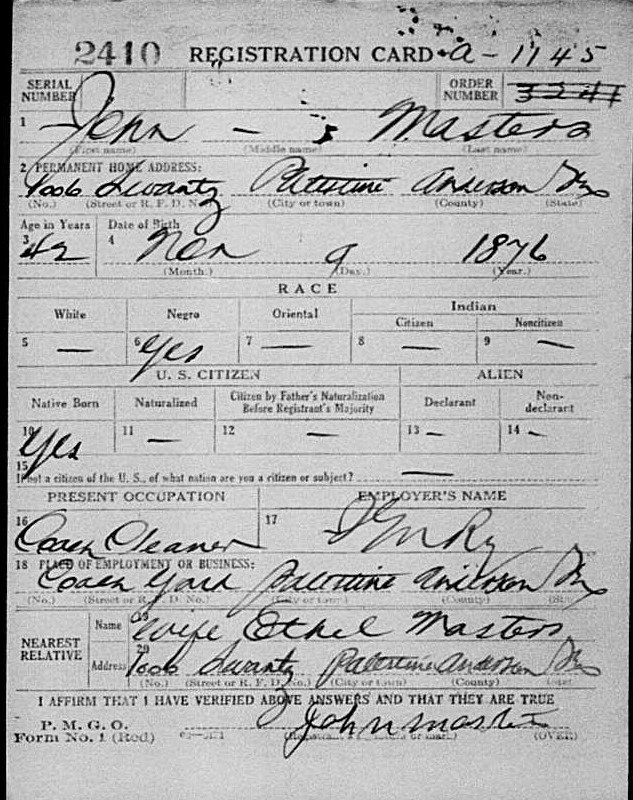 2410 REGISTRATION CARD a - 1745
SERIAL NUMBER ORDER NUMBER 3241
1 John — Masters
(First name) (Middle name) (Last name)
2 PERMANENT HOME ADDRESS:
1006 Swantz Palestine Anderson Tex
(No.) (Street or R. F. D. No.) (City or town) (County) (State)
Age in Years Date of Birth
3 42 4 Nov 9 1876
(Month.) (Day.) (Year.)
RACE
White Negro Oriental Indian
Citizen Noncitizen
5 — 6 Yes 7 — 8 — 9 —
U. S. CITIZEN ALIEN
Native Born Naturalized Citizen by Father's Naturalization Before Registrant's Majority Declarant Non-declarant
10 Yes 11 — 12 — 13 — 14 —
15 If not a citizen of the U. S., of what nation are you a citizen or subject? —
PRESENT OCCUPATION EMPLOYER'S NAME
16 Coach Cleaner 17 I G N Ry
18 PLACE OF EMPLOYMENT OR BUSINESS:
Coach Yard Palestine Anderson Tex
(No.) (Street or R. F. D. No.) (City or town) (County) (State)
NEAREST RELATIVE Name 19 Wife Ethel Masters
Address 20 1006 Swantz Palestine Anderson Tex
(No.) (Street or R. F. D. No.) (City or Town) (County) (State)
I AFFIRM THAT I HAVE VERIFIED ABOVE ANSWERS AND THAT THEY ARE TRUE
P. M. G. O.
Form No. 1 (Red) John Masters
(Registrant's signature or mark) (OVER)